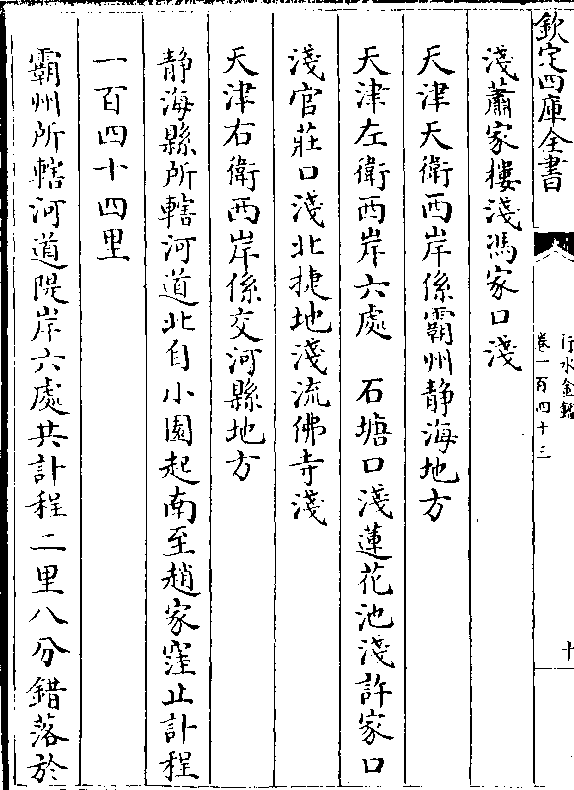 欽定四庫全書
行水金鑑
卷一百四十三
十
淺蕭家樓淺馮家口淺
天津天衛西岸係霸州静海地方
天津左衛西岸六處　石塘口淺蓮花池淺許家口
淺官莊口淺北捷地淺流佛寺淺
天津右衛西岸係交河縣地方
静海縣所轄河道北自小園起南至趙家窪止計程
一百四十四里
霸州所轄河道隄岸六處共計程二里八分錯落於